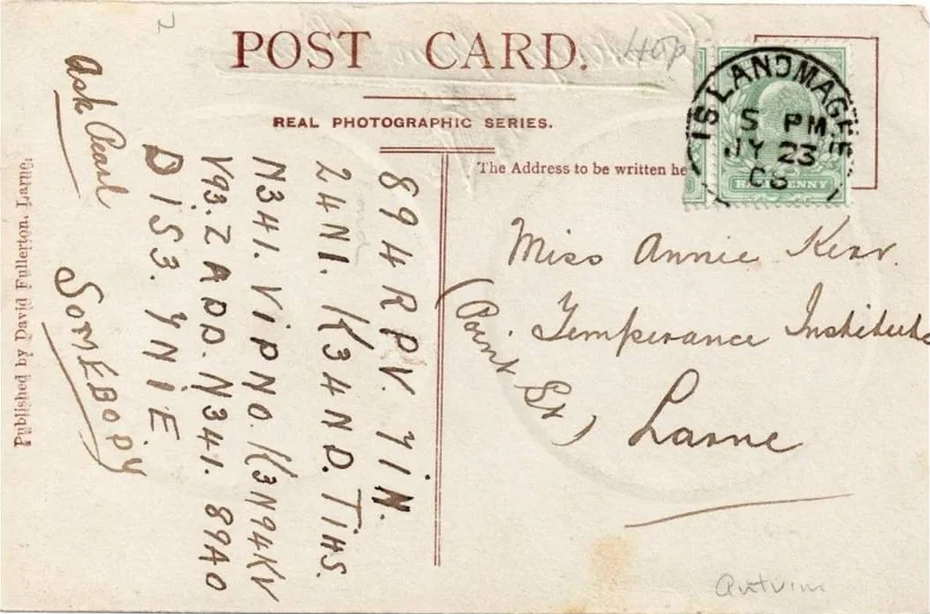 POST CARD.
REAL PHOTOGRAPHIC SERIES.
The Address to be written he
ISLANDMAGEE
5 PM
JY 23
08
HALFPENNY
Miss Annie Kerr.
Temperance Institute
(Point St.)
Larne
Antrim
894RPV. YIN.
24NI. K34ND. TiHS.
N341. ViPNO. K3N94KV
V93. ZADD. N341. 89AO
DiS3. YNiE.
SOMEBODY
Ask Pearl
Published by David Fullerton, Larne.